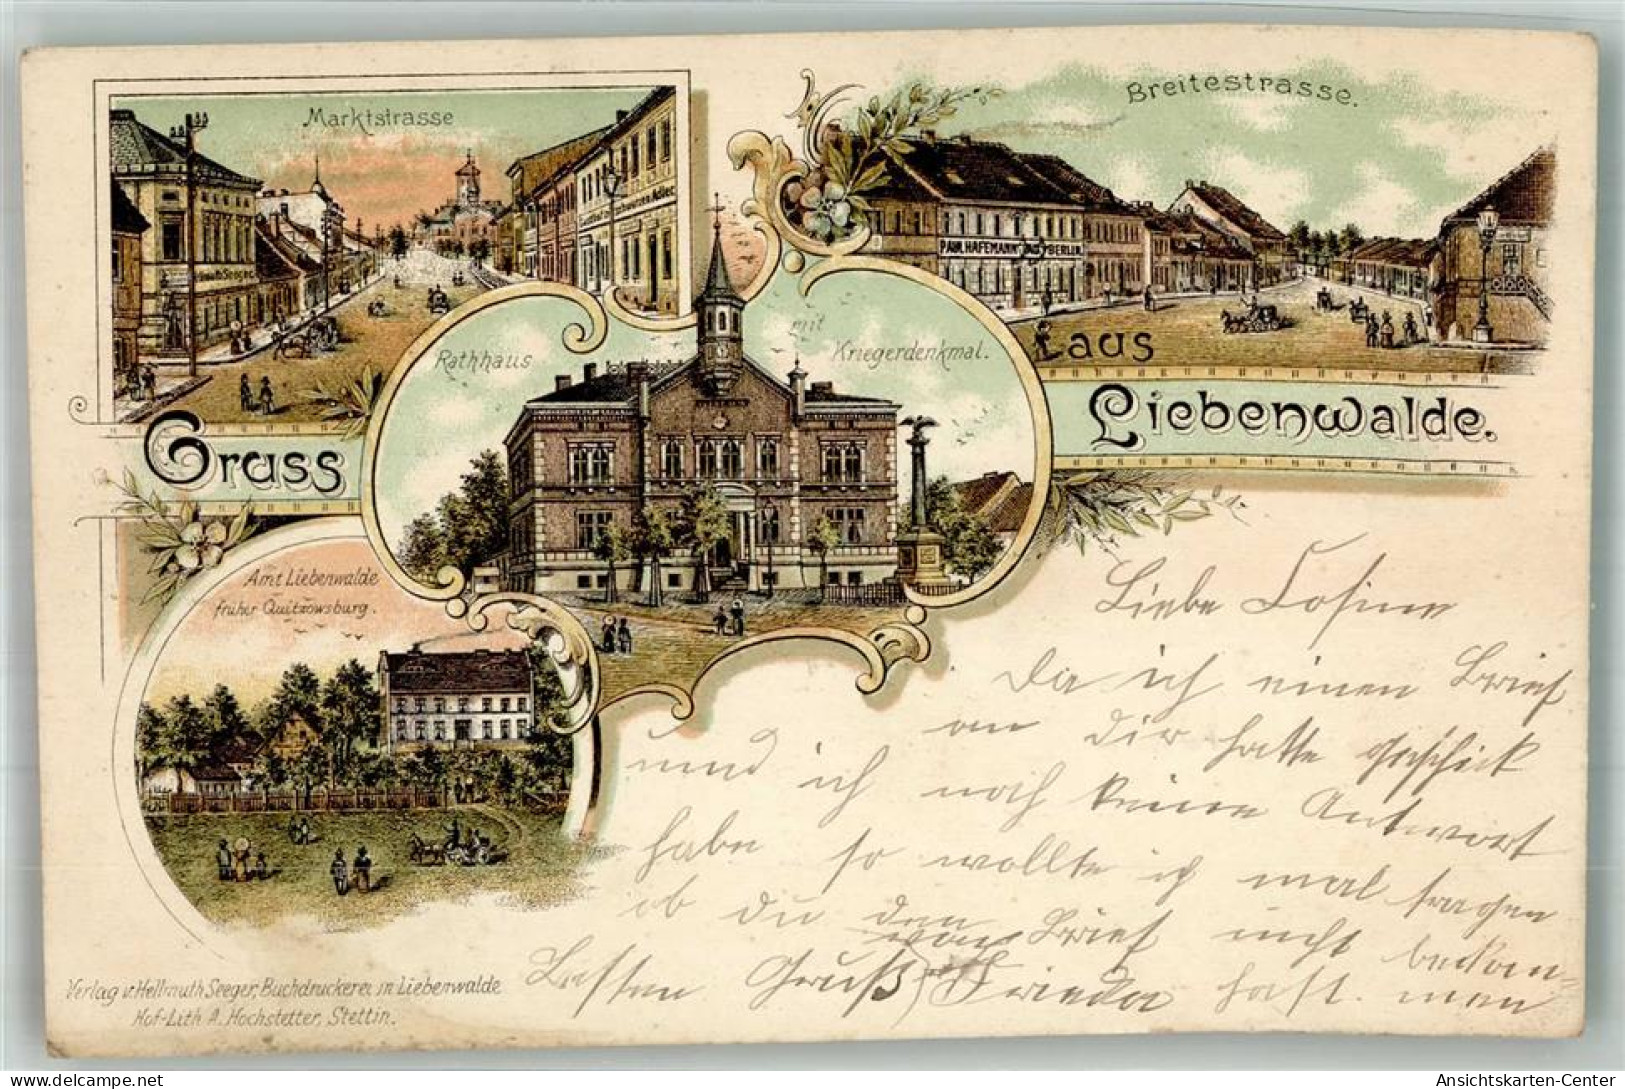 Marktstrasse
Breitestrasse.
PAUL HAFEMANN AUS BERLIN.
Rathhaus
mit
Kriegerdenkmal.
Gruss
aus
Liebenwalde.
Amt Liebenwalde
früher Quitzowsburg.
Liebe Cosine
Da ich einen Brief
an dir hatte geschick
und ich noch keine Antwort
habe so wollte ich mal fragen
ob du den Brief nicht bekom=
Besten Gruß von Frieda hast. men
Verlag v. Hellmuth Seeger, Buchdruckerei in Liebenwalde
Hof-Lith. A. Hochstetter, Stettin.
Ansichtskarten-Center